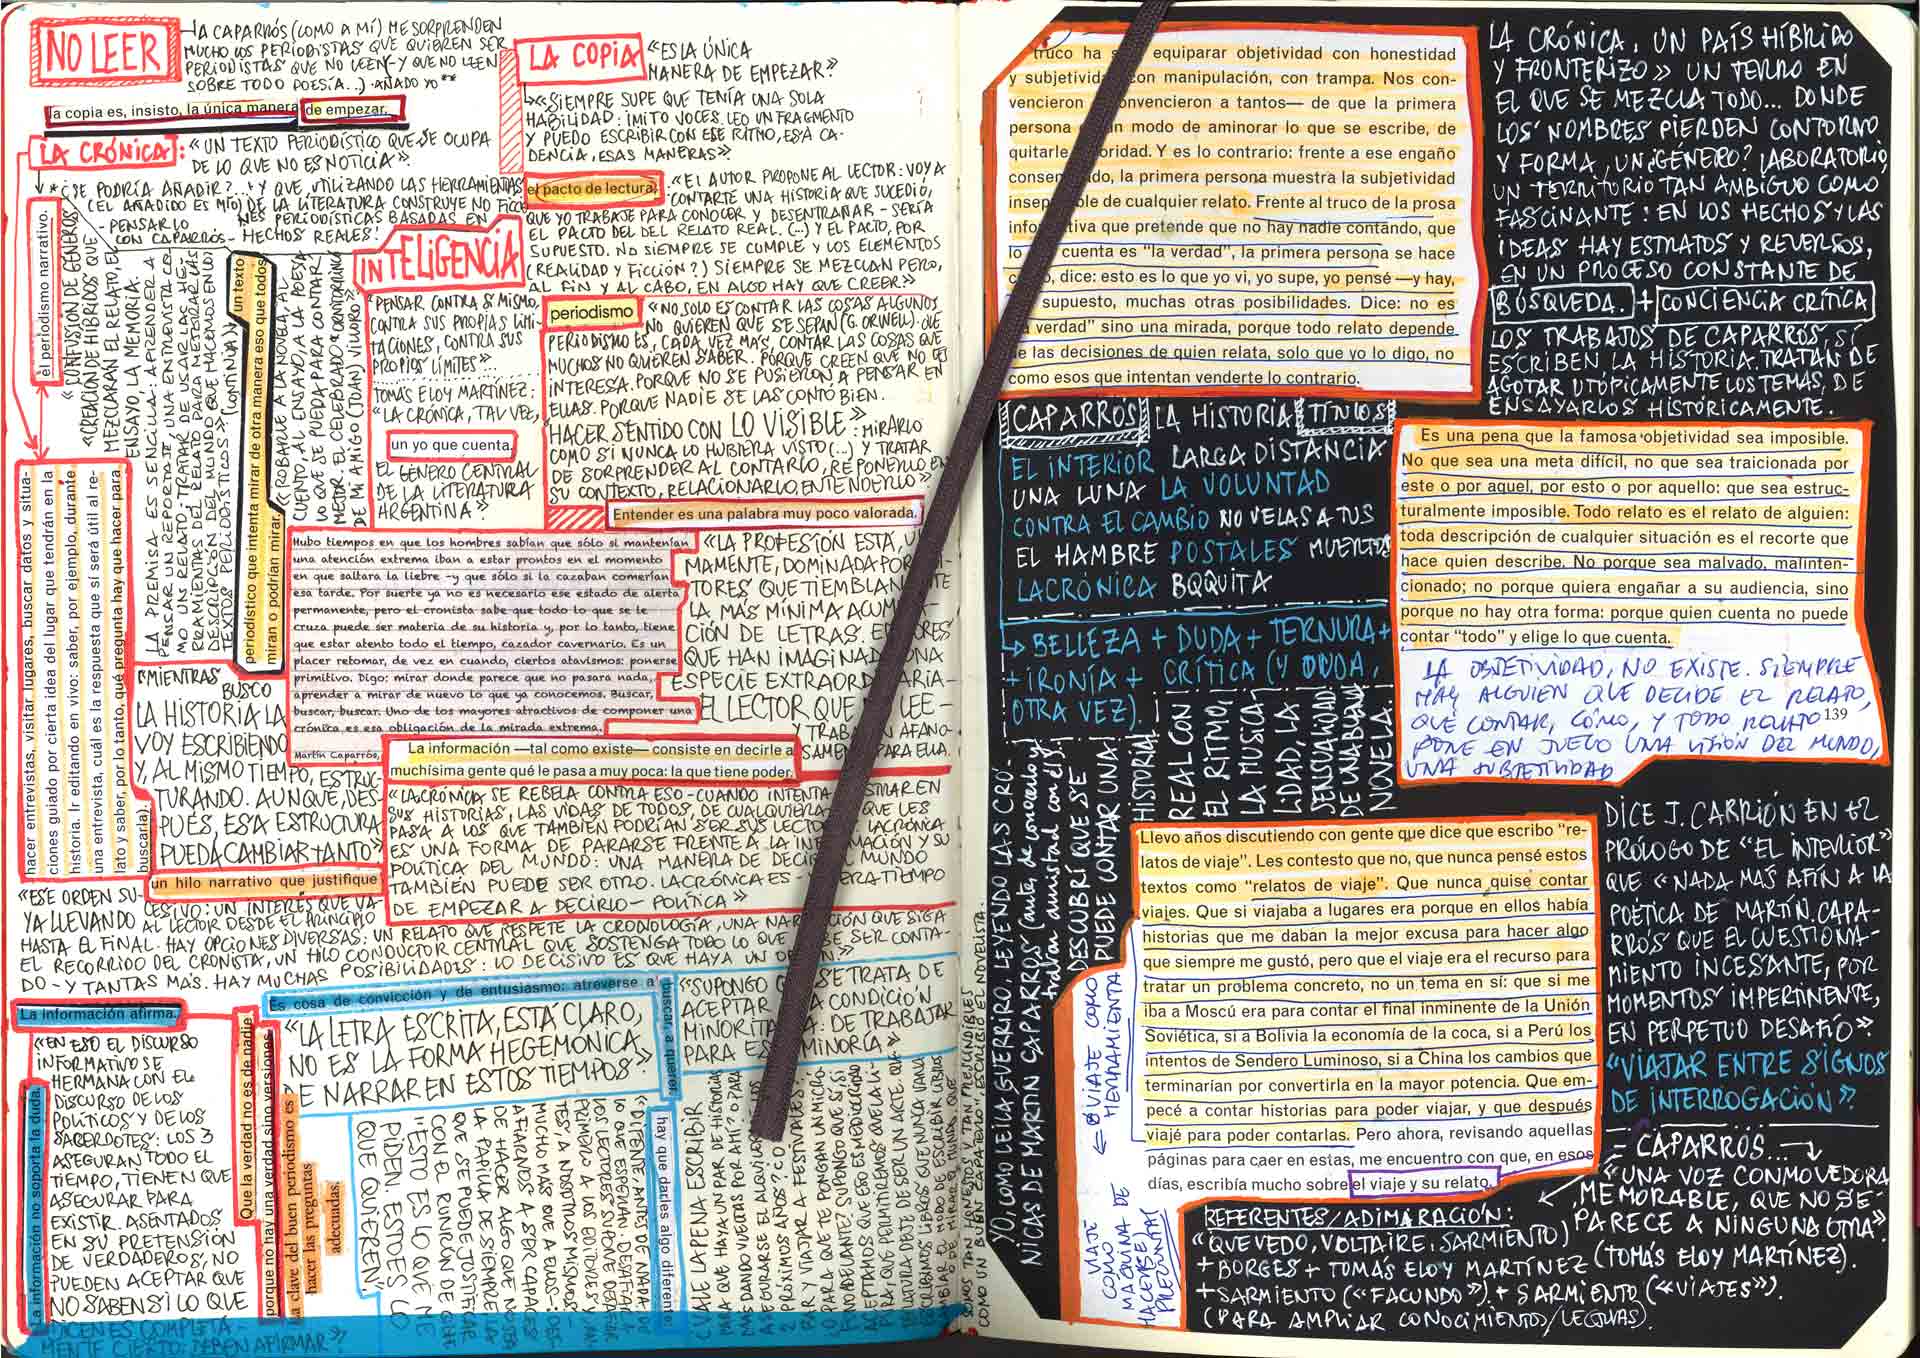 NO LEER
A CAPARRÓS (COMO A MÍ) ME SORPRENDEN
MUCHO LOS PERIODISTAS QUE QUIEREN SER
PERIODISTAS QUE NO LEEN - Y QUE NO LEEN
SOBRE TODO POESÍA...) - AÑADO YO**
la copia es, insisto, la única manera de empezar.
LA CRÓNICA: «UN TEXTO PERIODÍSTICO QUE SE OCUPA
DE LO QUE NO ES NOTICIA».
*¿SE PODRÍA AÑADIR?... Y QUE, UTILIZANDO LAS HERRAMIENTAS
(EL AÑADIDO ES MÍO) DE LA LITERATURA CONSTRUYE NO FICCIO-
NES PERIODÍSTICAS BASADAS EN
HECHOS REALES!
- PENSARLO
CON CAPARRÓS -
el periodismo narrativo.
«CONFUSIÓN DE GÉNEROS»
«CREACIÓN DE HÍBRIDOS QUE
MEZCLARÁN EL RELATO, EL
ENSAYO, LA MEMORIA.
LA PREMISA ES SENCILLA: APRENDER A
PENSAR UN REPORTAJE, UNA ENTREVISTA CO-
MO UN RELATO. TRATAR DE USAR LAS HE-
RRAMIENTAS DEL RELATO PARA MEJORAR LAS
DESCRIPCIÓN DEL MUNDO QUE HACEMOS EN LOS
TEXTOS PERIODÍSTICOS» (CONTINÚA)
un texto
periodístico que intenta mirar de otra manera eso que todos
miran o podrían mirar.
«ROBARLE A LA NOVELA, AL
CUENTO, AL ENSAYO, A LA POESÍA
LO QUE SE PUEDA PARA CONTAR
MEJOR. EL CELEBRADO
DE MI AMIGO (JUAN) VILLORO»
hacer entrevistas, visitar lugares, buscar datos y situa-
ciones guiado por cierta idea del lugar que tendrán en la
historia. Ir editando en vivo: saber, por ejemplo, durante
una entrevista, cuál es la respuesta que sí será útil al re-
lato y saber, por lo tanto, qué pregunta hay que hacer para
buscarla).
INTELIGENCIA
"PENSAR CONTRA SÍ MISMO,
CONTRA SUS PROPIAS LIMI-
TACIONES, CONTRA SUS
PROPIOS LÍMITES"
TOMÁS ELOY MARTÍNEZ:
"LA CRÓNICA, TAL VEZ,
un yo que cuenta.
EL GÉNERO CENTRAL
DE LA LITERATURA
ARGENTINA»
LA COPIA
«ES LA ÚNICA
MANERA DE EMPEZAR?»
«SIEMPRE SUPE QUE TENÍA UNA SOLA
HABILIDAD: IMITO VOCES. LEO UN FRAGMENTO
Y PUEDO ESCRIBIR CON ESE RITMO, ESA CA-
DENCIA, ESAS MANERAS»
el pacto de lectura.
«EL AUTOR PROPONE AL LECTOR: VOY A
CONTARTE UNA HISTORIA QUE SUCEDIÓ,
QUE YO TRABAJÉ PARA CONOCER Y DESENTRAÑAR - SERÍA
EL PACTO DEL DEL RELATO REAL. (...) Y EL PACTO, POR
SUPUESTO. NO SIEMPRE SE CUMPLE Y LOS ELEMENTOS
(REALIDAD Y FICCIÓN?) SIEMPRE SE MEZCLAN PERO,
AL FIN Y AL CABO, EN ALGO HAY QUE CREER»
periodismo
«NO SOLO ES CONTAR LAS COSAS ALGUNOS
NO QUIEREN QUE SE SEPAN (G. ORWELL). QUE
PERIODISMO ES, CADA VEZ MÁS, CONTAR LAS COSAS QUE
MUCHOS NO QUIEREN SABER. PORQUE CREEN QUE NO LES
INTERESA. PORQUE NO SE PUSIERON A PENSAR EN
ELLAS. PORQUE NADIE SE LAS CONTÓ BIEN.
HACER SENTIDO CON LO VISIBLE»: MIRARLO
COMO SI NUNCA LO HUBIERA VISTO (...) Y TRATAR
DE SORPRENDER AL CONTARLO, REPONERLO EN
SU CONTEXTO, RELACIONARLO, ENTENDERLO»
Entender es una palabra muy poco valorada.
Hubo tiempos en que los hombres sabían que sólo si mantenían
una atención extrema iban a estar prontos en el momento
en que saltara la liebre -y que sólo si la cazaban comerían
esa tarde. Por suerte ya no es necesario ese estado de alerta
permanente, pero el cronista sabe que todo lo que se le
cruza puede ser materia de su historia y, por lo tanto, tiene
que estar atento todo el tiempo, cazador cavernario. Es un
placer retomar, de vez en cuando, ciertos atavismos: ponerse
primitivo. Digo: mirar donde parece que no pasara nada,
aprender a mirar de nuevo lo que ya conocemos. Buscar,
buscar, buscar. Uno de los mayores atractivos de componer una
crónica es esa obligación de la mirada extrema.
Martín Caparrós,
«LA PROFESIÓN ESTÁ,
MAMENTE, DOMINADA POR
TORES QUE TIEMBLAN
LA MÁS MÍNIMA ACUMU
CIÓN DE LETRAS. EDITORES
QUE HAN IMAGINADO UNA
ESPECIE EXTRAORDINARIA-
EL LECTOR QUE NO LEE-
Y TRABAJAN AFANO-
SAMENTE PARA ELLA.
La información —tal como existe— consiste en decirle a
muchísima gente qué le pasa a muy poca: la que tiene poder.
«LACRÓNICA SE REBELA CONTRA ESO - CUANDO INTENTA MOSTRAR EN
SUS HISTORIAS, LAS VIDAS DE TODOS, DE CUALQUIERA: LO QUE LES
PASA A LOS QUE TAMBIÉN PODRÍAN SER SUS LECTORES. LACRÓNICA
ES UNA FORMA DE PARARSE FRENTE A LA INFORMACIÓN Y SU
POLÍTICA DEL MUNDO: UNA MANERA DE DECIR EL MUNDO
TAMBIÉN PUEDE SER OTRO. LACRÓNICA ES - TIEMPO
DE EMPEZAR A DECIRLO - POLÍTICA»
"MIENTRAS
BUSCO
LA HISTORIA LA
VOY ESCRIBIENDO
Y, AL MISMO TIEMPO, ESTRUC-
TURANDO. AUNQUE, DES-
PUÉS, ESA ESTRUCTURA
PUEDA CAMBIAR TANTO»
un hilo narrativo que justifique
«ESE ORDEN SU-
CESIVO: UN INTERÉS QUE VA-
YA LLEVANDO AL LECTOR DESDE EL PRINCIPIO
HASTA EL FINAL. HAY OPCIONES DIVERSAS: UN RELATO QUE RESPETE LA CRONOLOGÍA, UNA NARRACIÓN QUE SIGA
EL RECORRIDO DEL CRONISTA, UN HILO CONDUCTOR CENTRAL QUE SOSTENGA TODO LO QUE DEBE SER CONTA-
DO - Y TANTAS MÁS. HAY MUCHAS POSIBILIDADES: LO DECISIVO ES QUE HAYA UN ORDEN.»
La información afirma.
«EN ESO EL DISCURSO
INFORMATIVO SE
HERMANA CON EL
DISCURSO DE LOS
POLÍTICOS Y DE LOS
SACERDOTES: LOS 3
ASEGURAN TODO EL
TIEMPO, TIENEN QUE
ASEGURAR PARA
EXISTIR. ASENTADOS
EN SU PRETENSIÓN
DE VERDADEROS, NO
PUEDEN ACEPTAR QUE
NO SABEN SI LO QUE
DICEN ES COMPLETA
MENTE CIERTO: DEBEN AFIRMAR»
La información no soporta la duda.
Que la verdad no es de nadie
porque no hay una verdad sino versiones
La clave del buen periodismo es
hacer las preguntas
adecuadas.
Es cosa de convicción y de entusiasmo: atreverse a
buscar, a querer.
«LA LETRA ESCRITA, ESTÁ CLARO,
NO ES LA FORMA HEGEMÓNICA
DE NARRAR EN ESTOS TIEMPOS»
hay que darles algo diferente.
«DIFERENTE, ANTES DE NADA, DE
LO QUE ESPERAN. DESAFIARLA
LOS LECTORES SUPONE DESAFIAR
PRIMERO A LOS EDITORES Y, AN-
TES, A NOSOTROS MISMOS -
MUCHO MÁS QUE A ELLOS: DES-
AFIARNOS A SER CAPACES
DE HACER ALGO QUE NO SEA
LA PAPILLA DE SIEMPRE, LA
QUE SE PUEDE JUSTIFICAR
CON EL RUNRÚN DE QUE
"ESTO ES LO QUE ME
PIDEN. ESTO ES LO
QUE QUIEREN"
«SUPONGO QUE SE TRATA DE
ACEPTAR LA CONDICIÓN
MINORITARIA: DE TRABAJAR
PARA ESA MINORÍA»
¿VALE LA PENA ESCRIBIR
SOMOS TAN HONESTOS Y TAN PRESCINDIBLES
COMO UN BUEN ZAPATERO" - ESCRIBIÓ EL NOVELISTA.
truco ha equiparar objetividad con honestidad
y subjetividad con manipulación, con trampa. Nos con-
vencieron convencieron a tantos— de que la primera
persona un modo de aminorar lo que se escribe, de
quitarle autoridad. Y es lo contrario: frente a ese engaño
consensuado, la primera persona muestra la subjetividad
inseparable de cualquier relato. Frente al truco de la prosa
informativa que pretende que no hay nadie contando, que
lo cuenta es “la verdad”, la primera persona se hace
cargo, dice: esto es lo que yo vi, yo supe, yo pensé —y hay,
supuesto, muchas otras posibilidades. Dice: no es
“la verdad” sino una mirada, porque todo relato depende
de las decisiones de quien relata, solo que yo lo digo, no
como esos que intentan venderte lo contrario.
LA CRÓNICA, UN PAÍS HÍBRIDO
Y FRONTERIZO» UN TERRENO EN
EL QUE SE MEZCLA TODO... DONDE
LOS NOMBRES PIERDEN CONTORNO
Y FORMA, UN ¿GÉNERO? LABORATORIO,
UN TERRITORIO TAN AMBIGUO COMO
FASCINANTE: EN LOS HECHOS Y LAS
IDEAS HAY ESTRATOS Y REVERSOS,
EN UN PROCESO CONSTANTE DE
BÚSQUEDA. + CONCIENCIA CRÍTICA
LOS TRABAJOS DE CAPARRÓS, SÍ
ESCRIBEN LA HISTORIA. TRATAN DE
AGOTAR UTÓPICAMENTE LOS TEMAS, DE
ENSAYARLOS HISTÓRICAMENTE.
CAPARRÓS LA HISTORIA TÍTULOS
EL INTERIOR LARGA DISTANCIA
UNA LUNA LA VOLUNTAD
CONTRA EL CAMBIO NO VELAS A TUS
EL HAMBRE POSTALES MUERTOS
LACRÓNICA BOQUITA
BELLEZA + DUDA + TERNURA +
+ IRONÍA + CRÍTICA (Y DUDA,
OTRA VEZ).
Es una pena que la famosa objetividad sea imposible.
No que sea una meta difícil, no que sea traicionada por
este o por aquel, por esto o por aquello: que sea estruc-
turalmente imposible. Todo relato es el relato de alguien:
toda descripción de cualquier situación es el recorte que
hace quien describe. No porque sea malvado, malinten-
cionado; no porque quiera engañar a su audiencia, sino
porque no hay otra forma: porque quien cuenta no puede
contar “todo” y elige lo que cuenta.
LA OBJETIVIDAD, NO EXISTE. SIEMPRE
HAY ALGUIEN QUE DECIDE EL RELATO,
QUÉ CONTAR, CÓMO, Y TODO RELATO
139
PONE EN JUEGO UNA VISIÓN DEL MUNDO,
UNA SUBJETIVIDAD
YO, COMO LEILA GUERRIERO, LEYENDO LAS CRÓ-
NICAS DE MARTÍN CAPARRÓS (antes de conocerlo y
trabar amistad con él),
DESCUBRÍ QUE SE
PUEDE CONTAR UNA
HISTORIA
REAL CON
EL RITMO,
LA MUSICA-
LIDAD, LA
SENSUALIDAD
DE UNA BUENA
NOVELA.
Llevo años discutiendo con gente que dice que escribo “re-
latos de viaje”. Les contesto que no, que nunca pensé estos
textos como “relatos de viaje”. Que nunca quise contar
viajes. Que si viajaba a lugares era porque en ellos había
historias que me daban la mejor excusa para hacer algo
que siempre me gustó, pero que el viaje era el recurso para
tratar un problema concreto, no un tema en sí: que si me
iba a Moscú era para contar el final inminente de la Unión
Soviética, si a Bolivia la economía de la coca, si a Perú los
intentos de Sendero Luminoso, si a China los cambios que
terminarían por convertirla en la mayor potencia. Que em-
pecé a contar historias para poder viajar, y que después
viajé para poder contarlas. Pero ahora, revisando aquellas
páginas para caer en estas, me encuentro con que, en esos
días, escribía mucho sobre el viaje y su relato.
EL VIAJE COMO
HERRAMIENTA
VIAJE
COMO
MÁQUINA DE
HACERSE
PREGUNTAS
DICE J. CARRIÓN EN EL
PRÓLOGO DE "EL INTERIOR"
QUE «NADA MÁS AFÍN A LA
POÉTICA DE MARTÍN CAPA-
RRÓS QUE EL CUESTIONA-
MIENTO INCESANTE, POR
MOMENTOS IMPERTINENTE,
EN PERPETUO DESAFÍO».
"VIAJAR ENTRE SIGNOS
DE INTERROGACIÓN»
CAPARRÓS...
«UNA VOZ CONMOVEDORA
MEMORABLE, QUE NO SE
PARECE A NINGUNA OTRA»
(TOMÁS ELOY MARTÍNEZ).
REFERENTES/ADMIRACIÓN:
"QUEVEDO, VOLTAIRE, SARMIENTO)
+ BORGES + TOMÁS ELOY MARTÍNEZ
+ SARMIENTO («FACUNDO») + SARMIENTO («VIAJES»).
(PARA AMPLIAR CONOCIMIENTOS/LECTURAS).